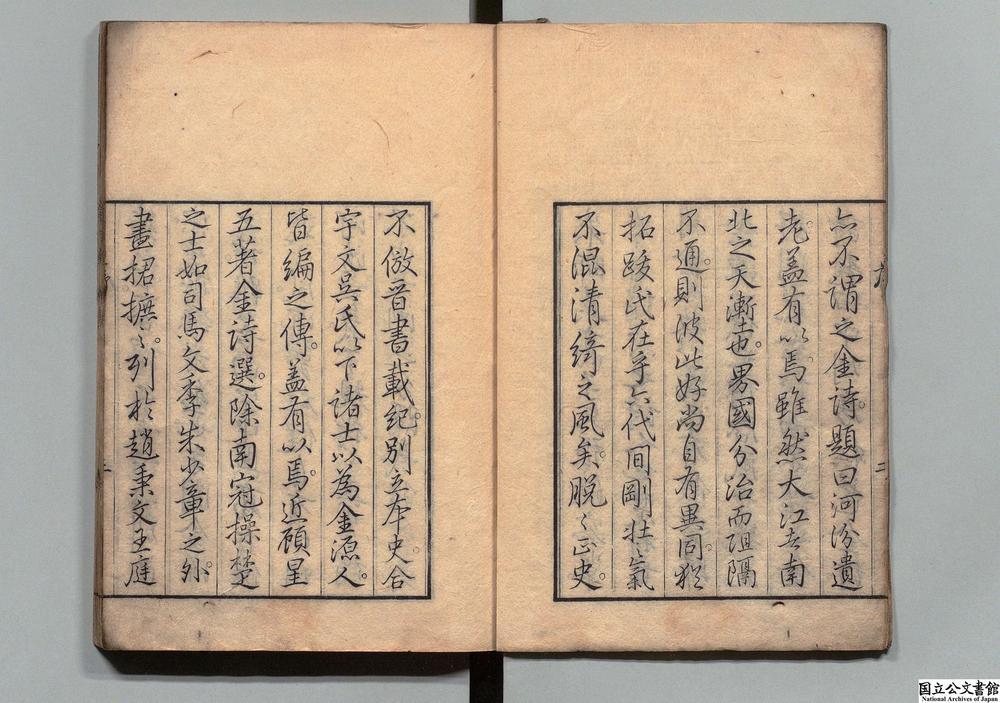 亦不謂之金詩。題曰河汾遺
老。蓋有以焉。雖然大江者南
北之天漸也。畧國分治而阻隔
不通。則彼此好尚自有異同。猶
拓跋氏在乎六代間剛壯〻氣
不混清綺之風矣。脱〻正史。
不倣晋書載紀。別立本史。合
宇文吴氏以下諸士以為金源人。
皆編之傳。蓋有以焉。近顧星
五著金詩選。除南冠操楚
之士如司馬文季朱少章之外。
畫捃摭〻。列於趙秉文王庭
国立公文書館
National Archives of Japan